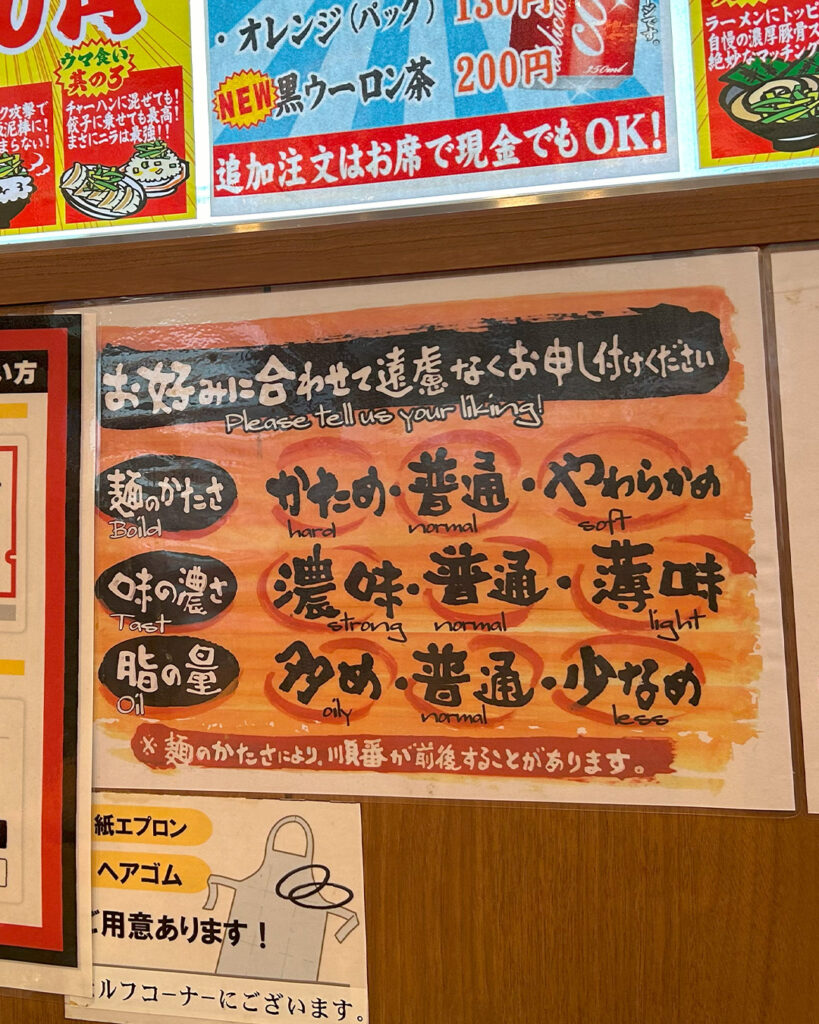 ウマ食い
其の3
チャーハンに混ぜても!
餃子に乗せても最高!
まさにニラは最強!!
・オレンジ(パック) 130円
NEW 黒ウーロン茶 200円
350ml
追加注文はお席で現金でもOK!
ラーメンにトッピ
自慢の濃厚豚骨ス
絶妙なマッチング
い方
お好みに合わせて遠慮なくお申し付けください
Please tell us your liking!
麺のかたさ かため・普通・やわらかめ
Boild hard normal soft
味の濃さ 濃味・普通・薄味
Tast strong normal light
脂の量 多め・普通・少なめ
Oil oily normal less
※麺のかたさにより、順番が前後することがあります。
紙エプロン
ヘアゴム
ご用意あります!
ルフコーナーにございます。